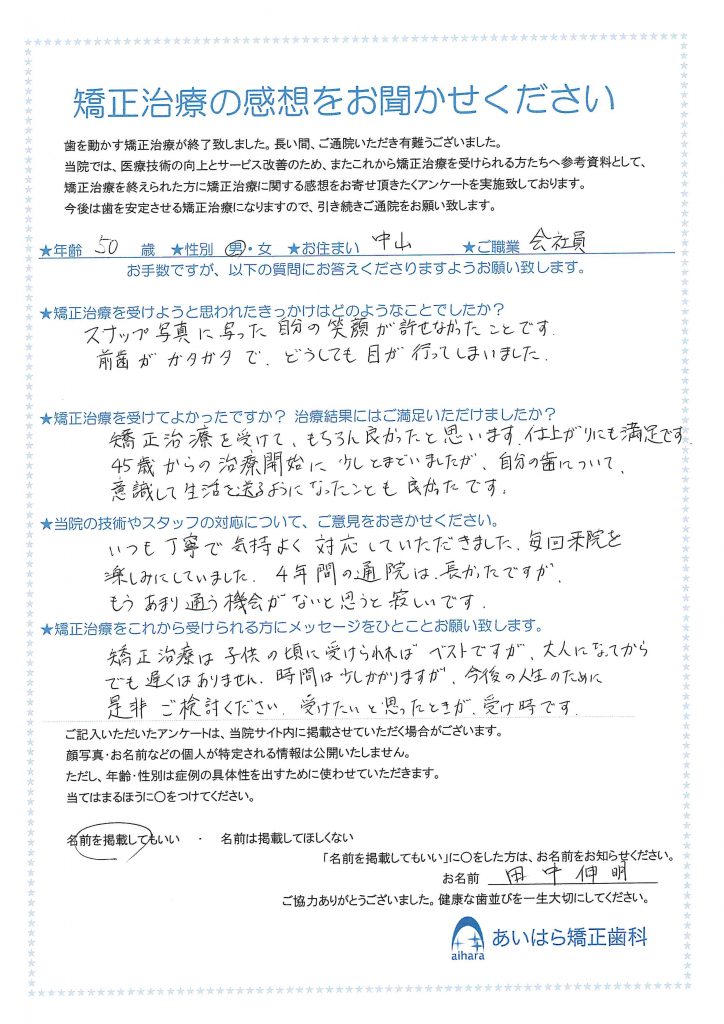 矯正治療の感想をお聞かせください
歯を動かす矯正治療が終了致しました。長い間、ご通院いただき有難うございました。
当院では、医療技術の向上とサービス改善のため、またこれから矯正治療を受けられる方たちへ参考資料として、
矯正治療を終えられた方に矯正治療に関する感想をお寄せ頂きたくアンケートを実施致しております。
今後は歯を安定させる矯正治療になりますので、引き続きご通院をお願い致します。
★年齢 50 歳 ★性別 男・女 ★お住まい 中山 ★ご職業 会社員
お手数ですが、以下の質問にお答えくださりますようお願い致します。
★矯正治療を受けようと思われたきっかけはどのようなことでしたか？
スナップ写真に写った自分の笑顔が許せなかったことです。
前歯がガタガタで、どうしても目が行ってしまいました。
★矯正治療を受けてよかったですか？ 治療結果にはご満足いただけましたか？
矯正治療を受けて、もちろん良かったと思います。仕上がりにも満足です。
45歳からの治療開始に少しとまどいましたが、自分の歯について、
意識して生活を送るようになったことも良かったです。
★当院の技術やスタッフの対応について、ご意見をおきかせください。
いつも丁寧で気持よく対応していただきました。毎回来院を
楽しみにしていました。4年間の通院は、長かったですが、
もうあまり通う機会がないと思うと寂しいです。
★矯正治療をこれから受けられる方にメッセージをひとことお願い致します。
矯正治療は子供の頃に受けられればベストですが、大人になってから
でも遅くはありません。時間は少しかかりますが、今後の人生のために
是非ご検討ください。受けたいと思ったときが、受け時です。
ご記入いただいたアンケートは、当院サイト内に掲載させていただく場合がございます。
顔写真・お名前などの個人が特定される情報は公開いたしません。
ただし、年齢・性別は症例の具体性を出すために使わせていただきます。
当てはまるほうに〇をつけてください。
名前を掲載してもいい ・ 名前は掲載してほしくない
「名前を掲載してもいい」に〇をした方は、お名前をお知らせください。
お名前 田中伸明
ご協力ありがとうございました。健康な歯並びを一生大切にしてください。
aihara あいはら矯正歯科